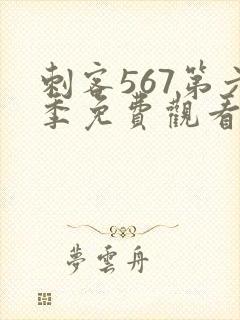 刺客567第六
季免費觀看
夢雲舟